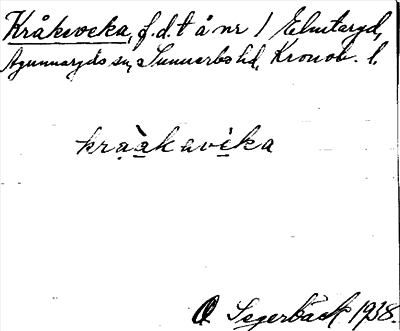 Kråkeveka, f.d. t å nr 1 Elmtaryd,
Agunnaryds sn, Sunnerbo hd, Kronob. l.
kràakavèka
O Segerbäck 1938.